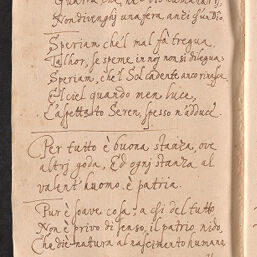 Non divenghi una fera, anzi qu' Dio
Speriam ché'l mal fà tregua,
Talhor, se speme in noj non si dilegua
Speriam, che'l Sol cadente anco rinasce.
E'l ciel quando men luce,
L'aspettato Seren, spesso n'adduce.
Per tutto è buona stanza, ove
altrj goda, Ed ognj stanza al
valent' huomo è patria.
Pur è soave cosa. a chi del tutto
Non è privo di senso, il patrio nido,
Che diè natura al nascimento humano